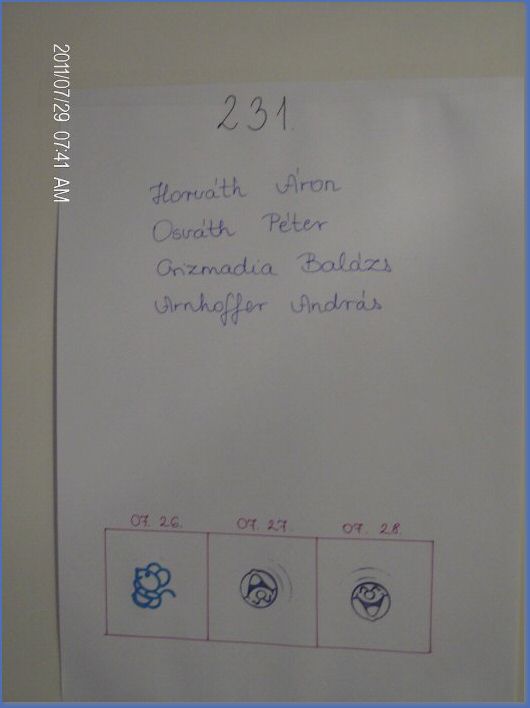 2011/07/29 07:41 AM
231.
Horváth Áron
Osváth Péter
Csizmadia Balázs
Arnhoffer András
07. 26. 07. 27. 07. 28.